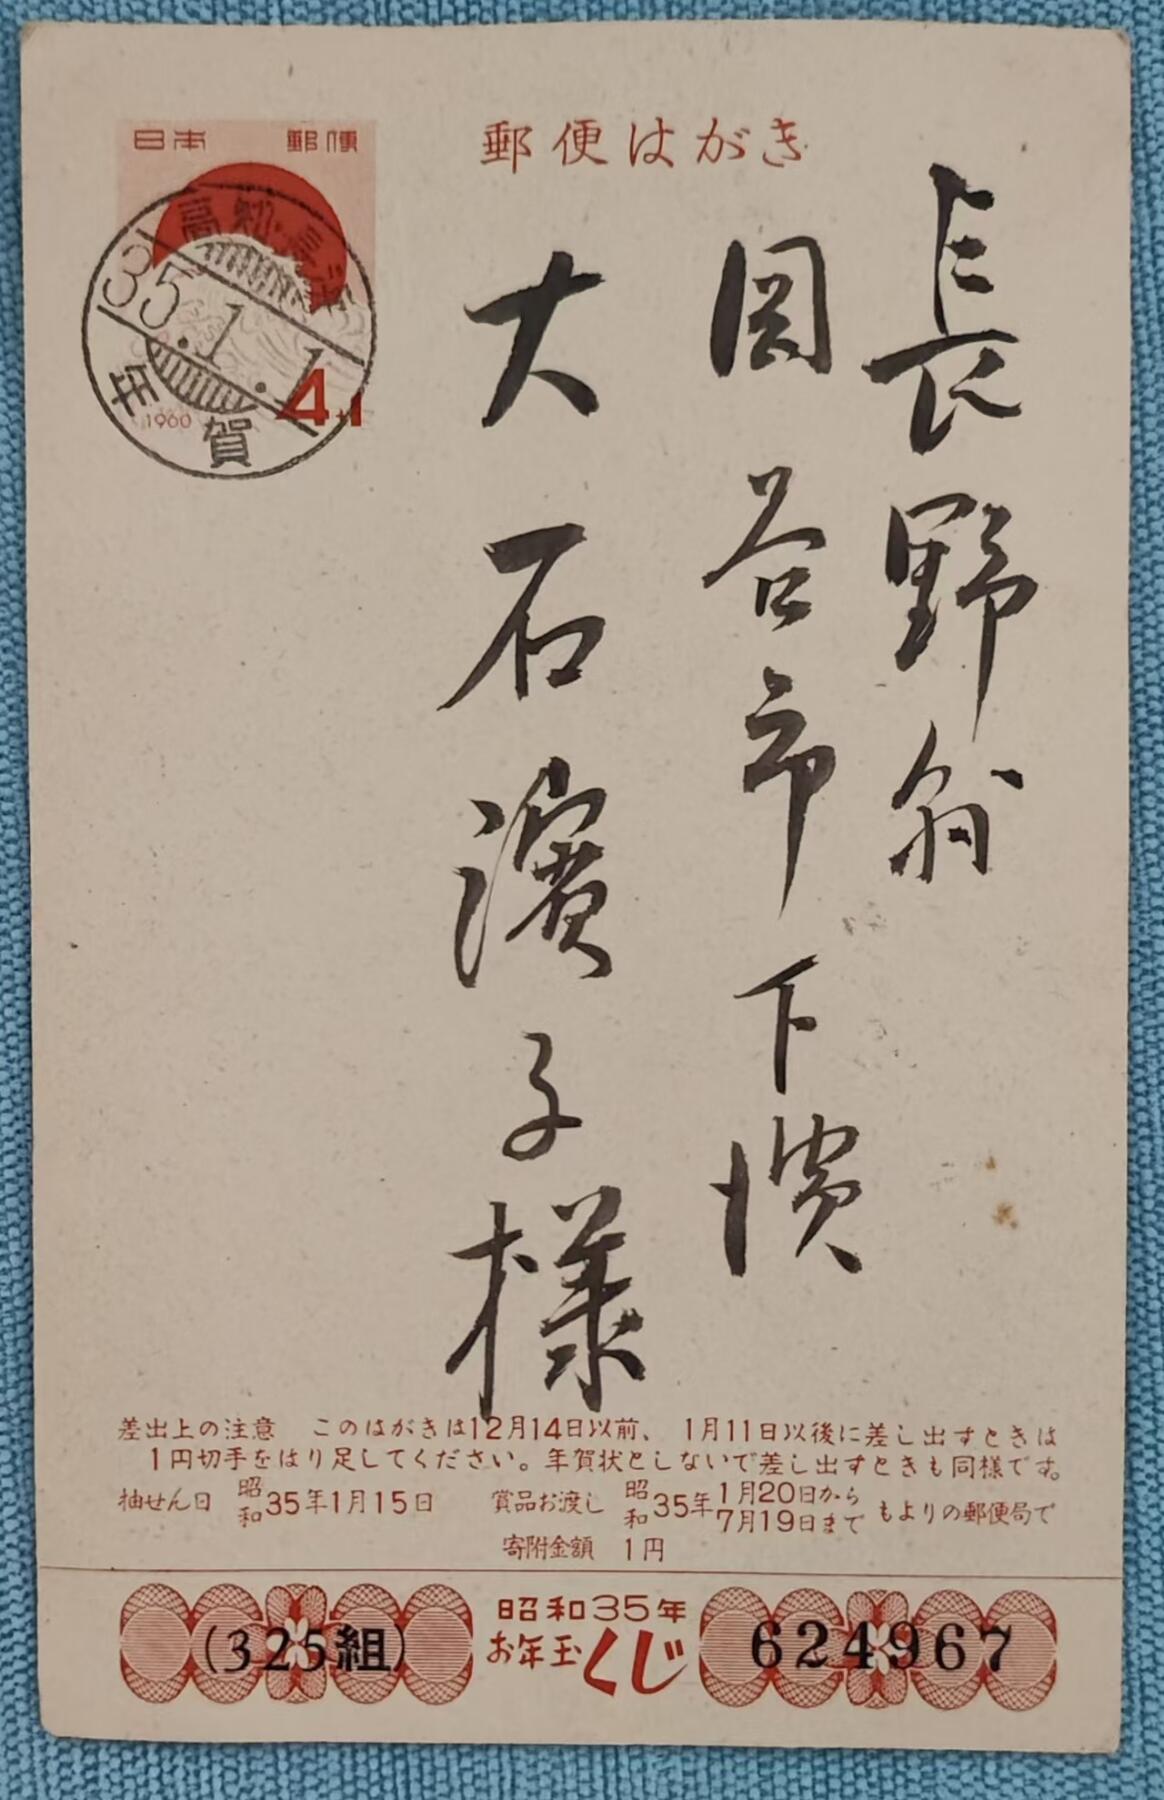 日本 郵便
郵便はがき
高知・長浜
35.1.1
年賀
1960
4+1
長野縣
岡谷市下濱
大石濱子様
差出上の注意 このはがきは12月14日以前、1月11日以後に差し出すときは
1円切手をはり足してください。年賀状としないで差し出すときも同様です。
抽せん日 昭和35年1月15日 賞品お渡し 昭和35年1月20日から7月19日まで もよりの郵便局で
寄附金額 1円
(325組)
昭和35年
お年玉くじ
624967